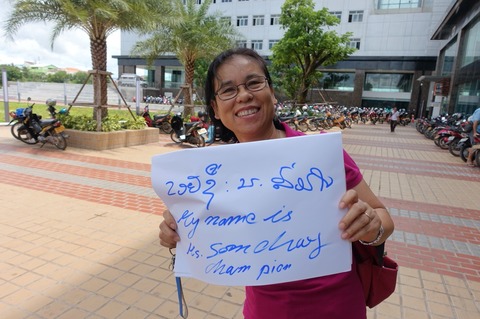 ຂ້ອຍຊື່ : ນ. ສົມໃຈ
My name is
Ms. Somchay
cham pion